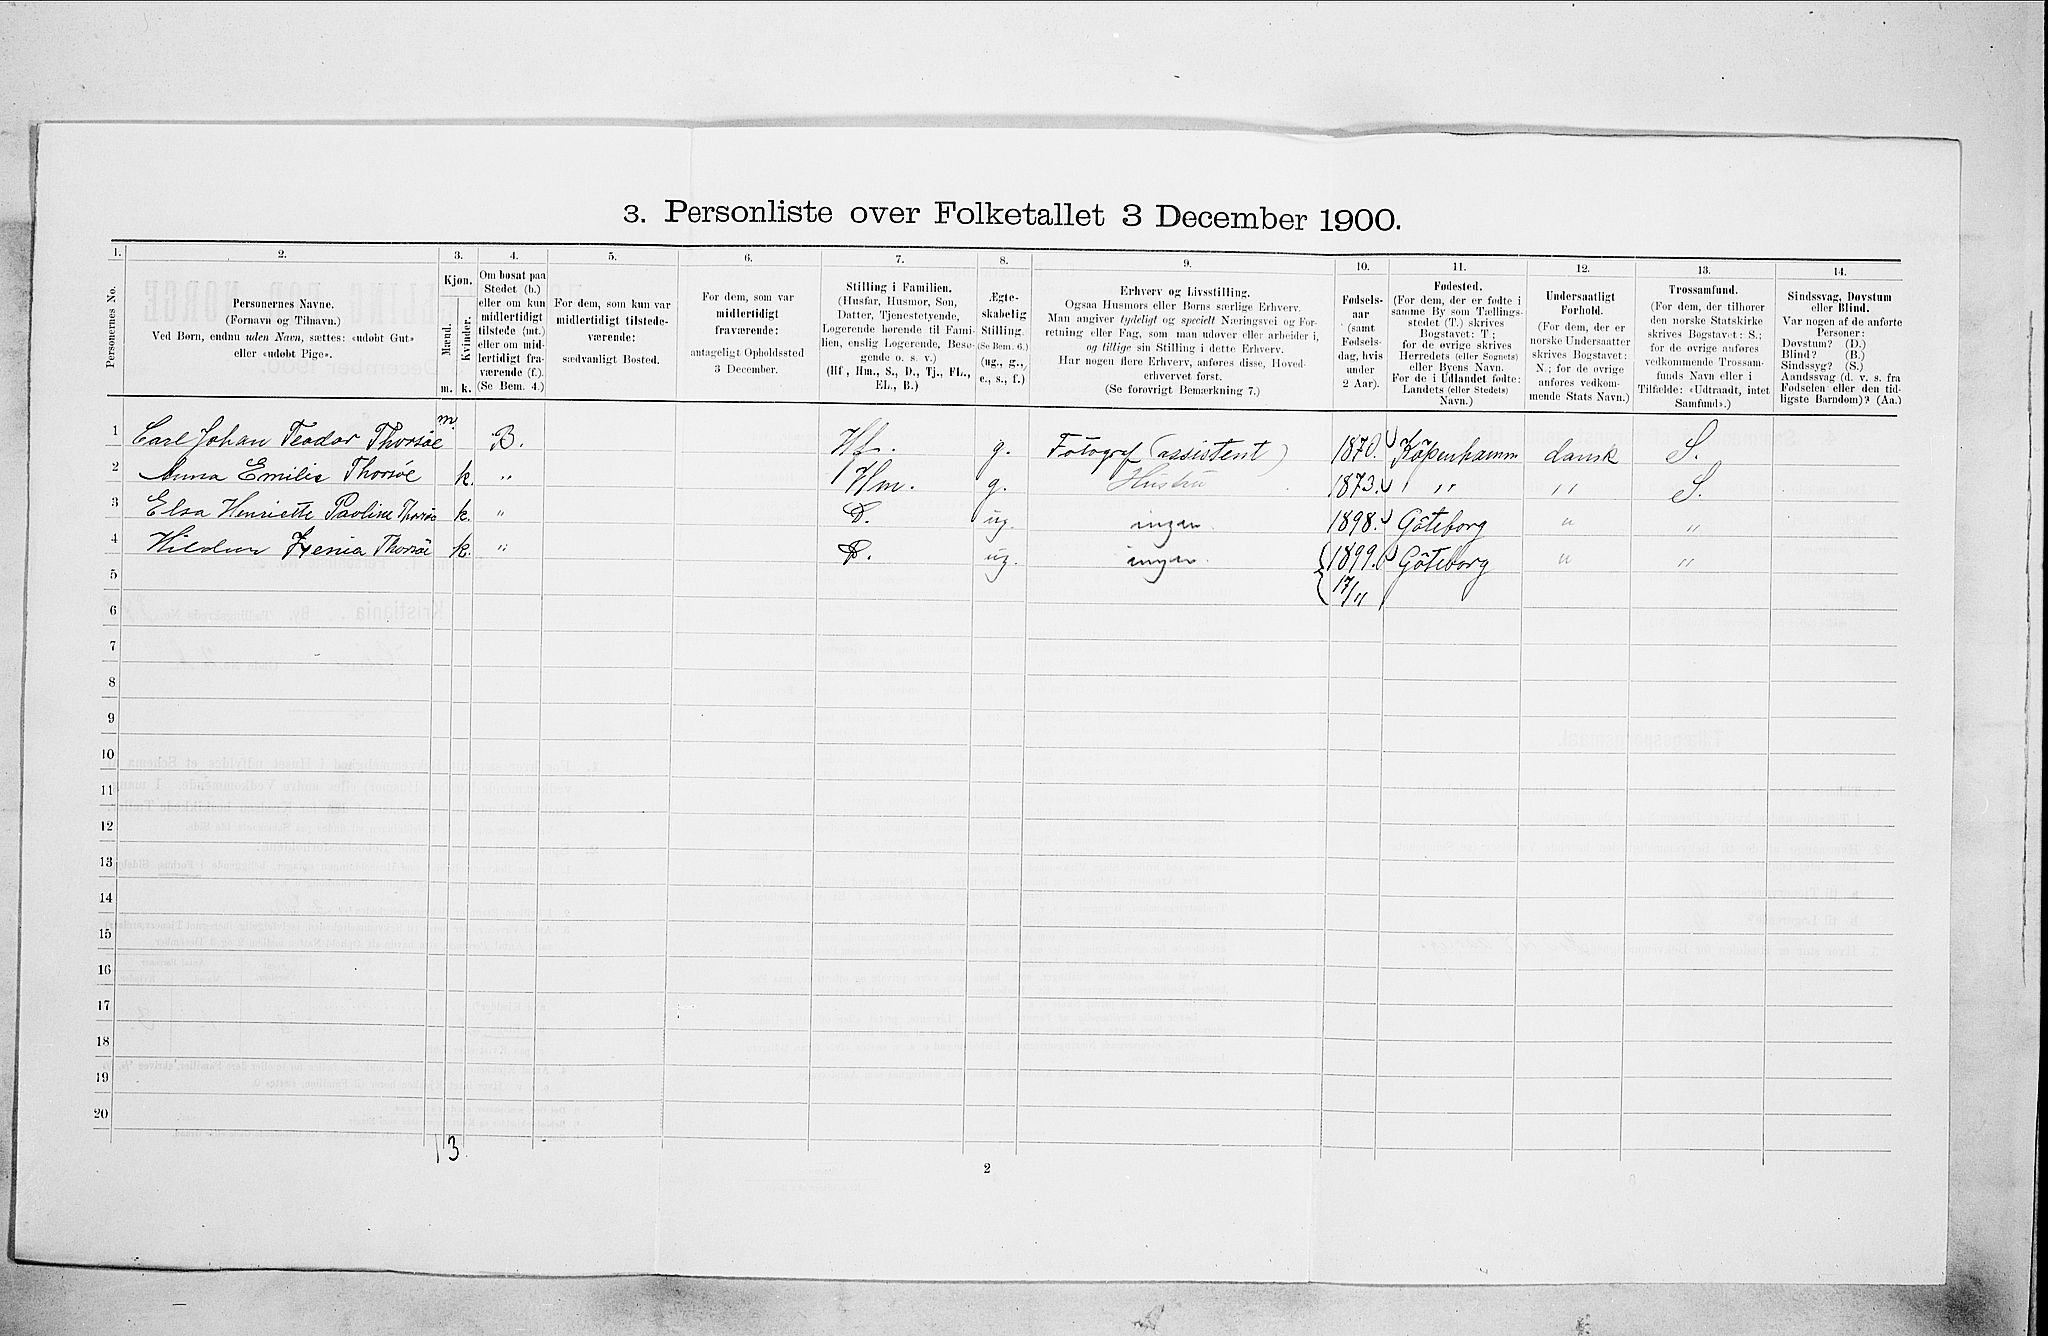 3. Personliste over Folketallet 3 December 1900.
1. 2. 3. 4. 5. 6. 7. 8. 9. 10. 11. 12. 13. 14.
Personernes No.
Personernes Navne.
(Fornavn og Tilnavn.)
Ved Børn, endnu uden Navn, sættes: «udøbt Gut»
eller «udøbt Pige».
Kjøn.
Mænd.
Kvinder.
m. k.
Om bosat paa
Stedet (b.)
eller om kun
midlertidigt
tilstede (mt.)
eller om mid-
lertidigt fra-
værende (f.).
(Se Bem. 4.)
For dem, som kun var
midlertidigt tilstede-
værende:
sædvanligt Bosted.
For dem, som var
midlertidigt
fraværende:
antageligt Opholdssted
3 December.
Stilling i Familien.
(Husfar, Husmor, Søn,
Datter, Tjenestetyende,
Logerende hørende til Fami-
lien, enslig Logerende, Besø-
gende o. s. v.)
(Hf., Hm., S., D., Tj., FL.,
EL., B.)
Ægte-
skabelig
Stilling.
(Se Bem. 6.)
(ug., g.,
e., s., f.)
Erhverv og Livsstilling.
Ogsaa Husmors eller Børns særlige Erhverv.
Man angiver tydeligt og specielt Næringsvei og For-
retning eller Fag, som man udøver eller arbeider i,
og tillige sin Stilling i dette Erhverv.
Har nogen flere Erhverv, anføres disse, Hoved-
erhvervet først.
(Se forøvrigt Bemærkning 7.)
Fødsels-
aar
(samt
Fødsels-
dag, hvis
under
2 Aar).
Fødested.
(For dem, der er fødte i
samme By som Tællings-
stedet (T.) skrives
Bogstavet: T;
for de øvrige skrives
Herredets (eller Sognets)
eller Byens Navn.
For de i Udlandet fødte:
Landets (eller Stedets)
Navn.)
Undersaatligt
Forhold.
(For dem, der er
norske Undersaatter
skrives Bogstavet:
N.; for de øvrige
anføres vedkom-
mende Stats Navn.)
Trossamfund.
(For dem, der tilhører
den norske Statskirke
skrives Bogstavet: S.;
for de øvrige anføres
vedkommende Trossam-
funds Navn eller i
Tilfælde: «Udtraadt, intet
Samfund».)
Sindssvag, Døvstum
eller Blind.
Var nogen af de anførte
Personer:
Døvstum? (D.)
Blind? (B.)
Sindssyg? (S.)
Aandssvag (d. v. s. fra
Fødselen eller den tid-
ligste Barndom)? (Aa.)
1 Carl Johan Teodor Thorsöe m. B. Hf. g. Fotograf (assistent) 1870. Köpenhamm dansk S.
2 Anna Emilie Thorsöe k. " Hm. g. Hustru 1873. " " S.
3 Elsa Henriette Pavline Thorsöe k. " D. ug. ingen. 1898. Göteborg " "
4 Thorsöe k. " D. ug. ingen. 1899. Göteborg " "
5 17/11
6
7
8
9
10
11
12
13
14
15
16
17
18
19
20
1 3
2